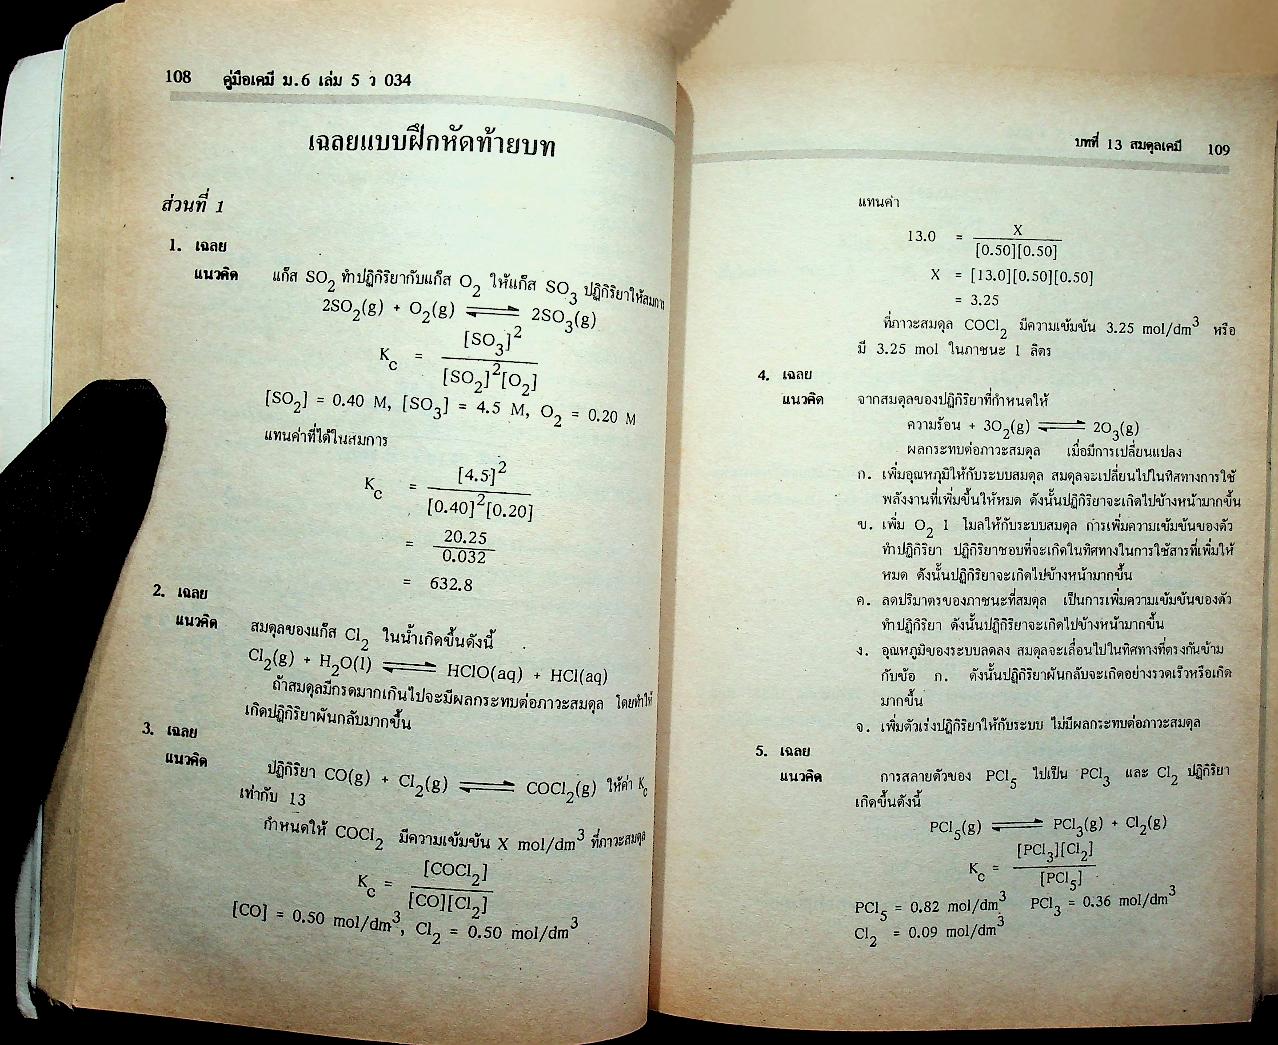 108 คู่มือเคมี ม.6 เล่ม 5 ว 034
เฉลยแบบฝึกหัดท้ายบท
ส่วนที่ 1
1. เฉลย
แนวคิด แก๊ส SO₂ ทำปฏิกิริยากับแก๊ส O₂ ให้แก๊ส SO₃ ปฏิกิริยาให้สมการ
2SO₂(g) + O₂(g) ⇌ 2SO₃(g)
K_c = [SO₃]² / [SO₂]²[O₂]
[SO₂] = 0.40 M, [SO₃] = 4.5 M, O₂ = 0.20 M
แทนค่าที่ได้ในสมการ
K_c = [4.5]² / [0.40]²[0.20]
= 20.25 / 0.032
= 632.8
2. เฉลย
แนวคิด สมดุลของแก๊ส Cl₂ ในน้ำเกิดขึ้นดังนี้
Cl₂(g) + H₂O(l) ⇌ HClO(aq) + HCl(aq)
ถ้าสมดุลมีกรดมากเกินไปจะมีผลกระทบต่อภาวะสมดุล โดยทำให้
เกิดปฏิกิริยาผันกลับมากขึ้น
3. เฉลย
แนวคิด ปฏิกิริยา CO(g) + Cl₂(g) ⇌ COCl₂(g) ให้ค่า K_c
เท่ากับ 13
กำหนดให้ COCl₂ มีความเข้มข้น X mol/dm³ ที่ภาวะสมดุล
K_c = [COCl₂] / [CO][Cl₂]
[CO] = 0.50 mol/dm³, Cl₂ = 0.50 mol/dm³
บทที่ 13 สมดุลเคมี 109
แทนค่า
13.0 = X / [0.50][0.50]
X = [13.0][0.50][0.50]
= 3.25
ที่ภาวะสมดุล COCl₂ มีความเข้มข้น 3.25 mol/dm³ หรือ
มี 3.25 mol ในภาชนะ 1 ลิตร
4. เฉลย
แนวคิด จากสมดุลของปฏิกิริยาที่กำหนดให้
ความร้อน + 3O₂(g) ⇌ 2O₃(g)
ผลกระทบต่อภาวะสมดุล เมื่อมีการเปลี่ยนแปลง
ก. เพิ่มอุณหภูมิให้กับระบบสมดุล สมดุลจะเปลี่ยนไปในทิศทางการใช้
พลังงานที่เพิ่มขึ้นให้หมด ดังนั้นปฏิกิริยาจะเกิดไปข้างหน้ามากขึ้น
ข. เพิ่ม O₂ 1 โมลให้กับระบบสมดุล การเพิ่มความเข้มข้นของตัว
ทำปฏิกิริยา ปฏิกิริยาชอบที่จะเกิดในทิศทางในการใช้สารที่เพิ่มให้
หมด ดังนั้นปฏิกิริยาจะเกิดไปข้างหน้ามากขึ้น
ค. ลดปริมาตรของภาชนะที่สมดุล เป็นการเพิ่มความเข้มข้นของตัว
ทำปฏิกิริยา ดังนั้นปฏิกิริยาจะเกิดไปข้างหน้ามากขึ้น
ง. อุณหภูมิของระบบลดลง สมดุลจะเลื่อนไปในทิศทางที่ตรงกันข้าม
กับข้อ ก. ดังนั้นปฏิกิริยาผันกลับจะเกิดอย่างรวดเร็วหรือเกิด
มากขึ้น
จ. เพิ่มตัวเร่งปฏิกิริยาให้กับระบบ ไม่มีผลกระทบต่อภาวะสมดุล
5. เฉลย
แนวคิด การสลายตัวของ PCl₅ ไปเป็น PCl₃ และ Cl₂ ปฏิกิริยา
เกิดขึ้นดังนี้
PCl₅(g) ⇌ PCl₃(g) + Cl₂(g)
K_c = [PCl₃][Cl₂] / [PCl₅]
PCl₅ = 0.82 mol/dm³ PCl₃ = 0.36 mol/dm³
Cl₂ = 0.09 mol/dm³